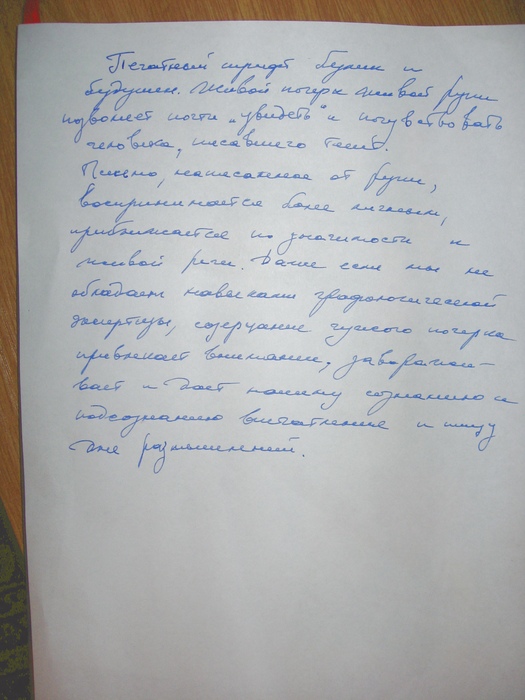 Печатный шрифт безлик и
бездушен. Живой почерк живой руки
позволяет почти „увидеть" и почувствовать
человека, писавшего текст.
Письмо, написанное от руки,
воспринимается более личным,
приближается по значимости к
живой речи. Даже если мы не
обладаем навыками графологической
экспертизы, созерцание чужого почерка
привлекает внимание, заворажи-
вает и даёт нашему сознанию и
подсознанию впечатление и пищу
для размышлений.